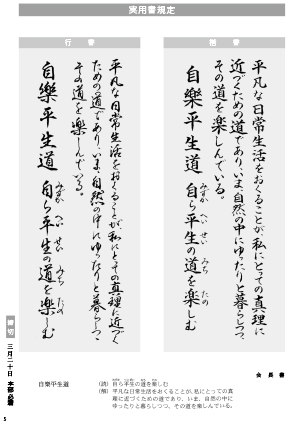 実用書規定
楷書
平凡な日常生活をおくることが、私にとっての真理に
近づくための道であり、いま、自然の中にゆったりと暮らしつつ、
その道を楽しんでいる。
自樂平生道 自ら平生の道を楽しむ
みずか へい せい みち たの
行書
平凡な日常生活をおくることが、私にとっての真理に近づく
ための道であり、いま、自然の中にゆったりと暮らしつつ、
その道を楽しんでいる。
自樂平生道 自ら平生の道を楽しむ
みずか へい せい みち たの
会長書
自樂平生道
(読) 自ら平生の道を楽しむ
(解) 平凡な日常生活をおくることが、私にとっての真
理に近づくための道であり、いま、自然の中に
ゆったりと暮らしつつ、その道を楽しんでいる。
締切
三月二十日 本部必着
5